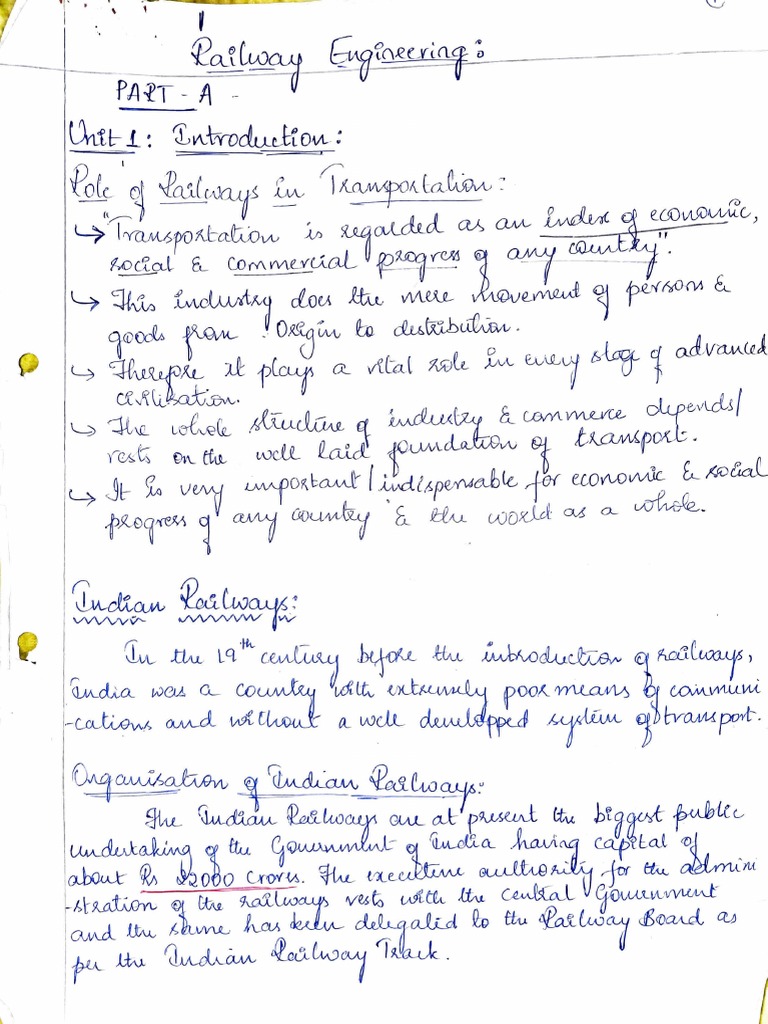 Railway Engineering:
PART - A -
Unit 1: Introduction:
Role of Railways in Transportation:
↳ "Transportation is regarded as an index of economic,
social & commercial progress of any country".
↳ This industry does the mere movement of persons &
goods from origin to distribution.
↳ Therefore it plays a vital role in every stage of advanced
civilisation.
↳ The whole structure of industry & commerce depends/
rests on the well laid foundation of transport.
↳ It is very important/indispensable for economic & social
progress of any country & the world as a whole.
Indian Railways:
In the 19th century before the introduction of railways,
India was a country with extremely poor means of communi
-cations and without a well developped system of transport.
Organisation of Indian Railways:
The Indian Railways are at present the biggest public
undertaking of the Government of India having capital of
about Rs crores. The executive authority for the admini
-stration of the railways vests with the central Government
and the same has been delegated to the Railway Board as
per the Indian Railway Track.